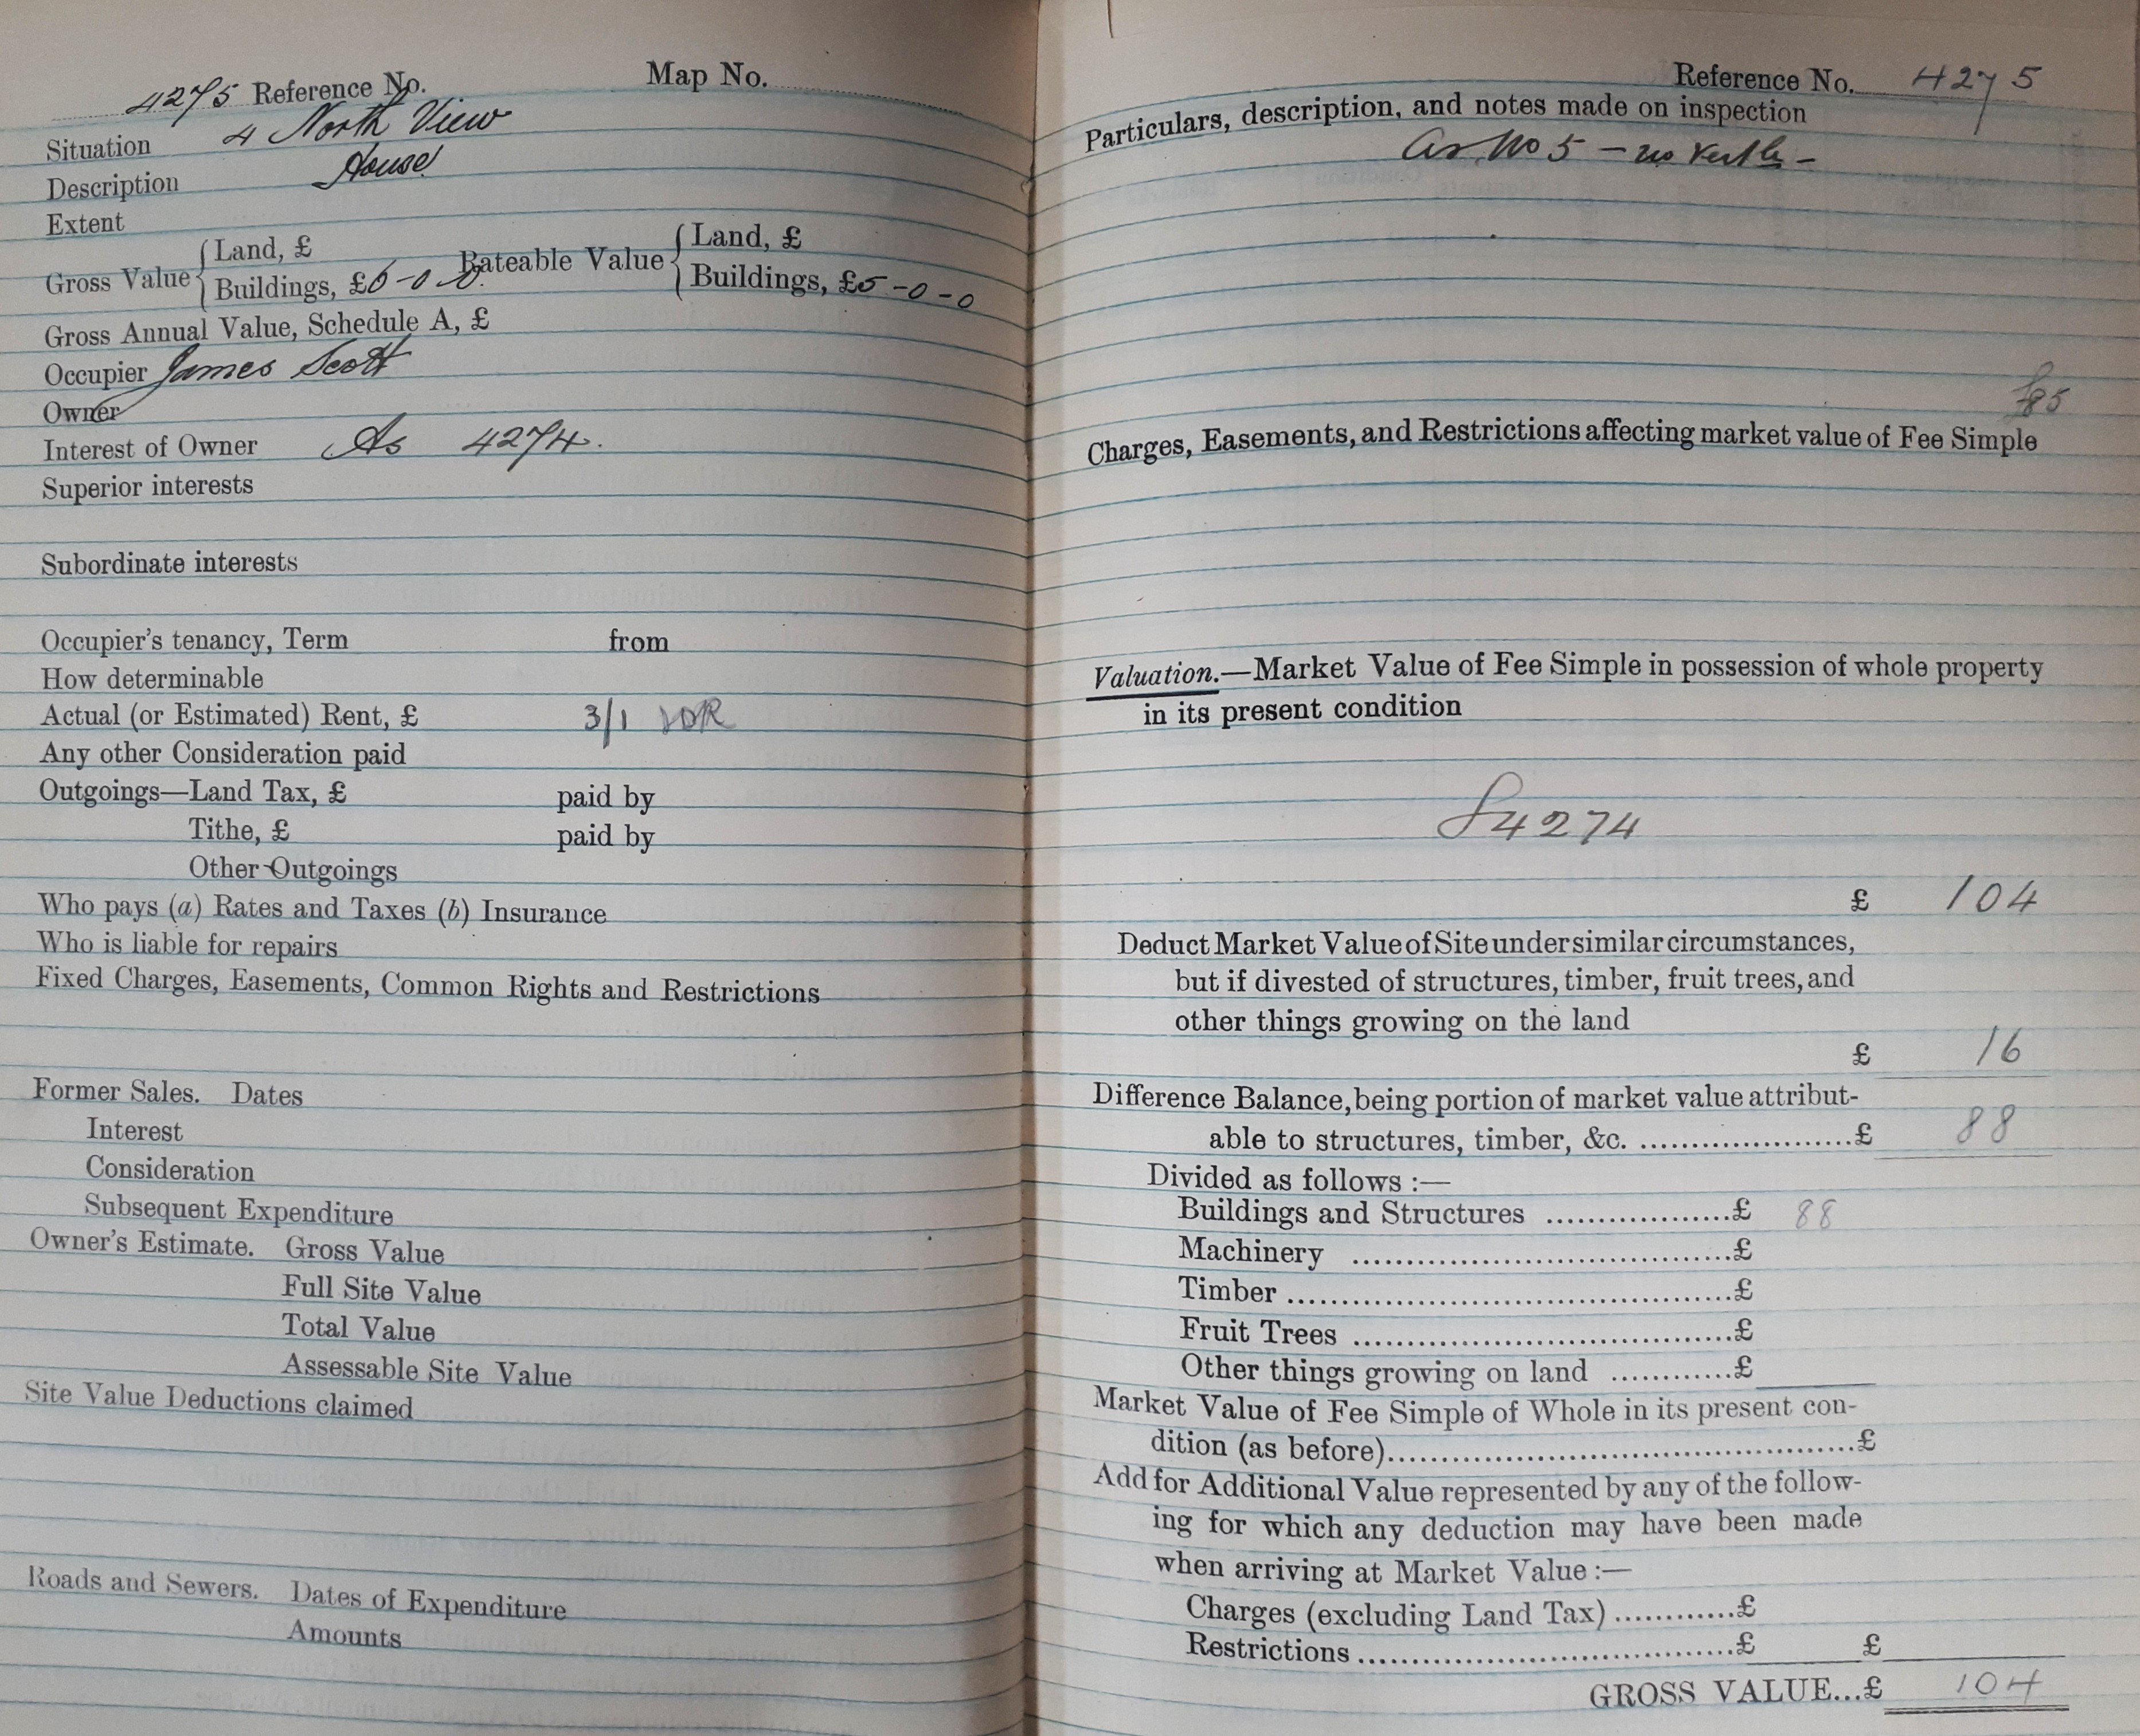 4275 Reference No. Map No.
Situation 4 North View
Description House
Extent
Gross Value { Land, £ Rateable Value { Land, £
Buildings, £6-0-0. Buildings, £5-0-0
Gross Annual Value, Schedule A, £
Occupier James Scott
Owner
Interest of Owner As 4274.
Superior interests
Subordinate interests
Occupier's tenancy, Term from
How determinable
Actual (or Estimated) Rent, £ 3/1
Any other Consideration paid
Outgoings—Land Tax, £ paid by
Tithe, £ paid by
Other Outgoings
Who pays (a) Rates and Taxes (b) Insurance
Who is liable for repairs
Fixed Charges, Easements, Common Rights and Restrictions
Former Sales. Dates
Interest
Consideration
Subsequent Expenditure
Owner's Estimate. Gross Value
Full Site Value
Total Value
Assessable Site Value
Site Value Deductions claimed
Roads and Sewers. Dates of Expenditure
Amounts
Reference No. 4275
Particulars, description, and notes made on inspection
As No 5 — no
Charges, Easements, and Restrictions affecting market value of Fee Simple
Valuation.—Market Value of Fee Simple in possession of whole property
in its present condition
4274
£ 104
Deduct Market Value of Site under similar circumstances,
but if divested of structures, timber, fruit trees, and
other things growing on the land
£ 16
Difference Balance, being portion of market value attribut-
able to structures, timber, &c. ......................£ 88
Divided as follows :—
Buildings and Structures ..................£ 88
Machinery ......................................£
Timber ............................................£
Fruit Trees ......................................£
Other things growing on land ............£
Market Value of Fee Simple of Whole in its present con-
dition (as before)..............................................£
Add for Additional Value represented by any of the follow-
ing for which any deduction may have been made
when arriving at Market Value :—
Charges (excluding Land Tax) ............£
Restrictions ......................................£ £
GROSS VALUE...£ 104